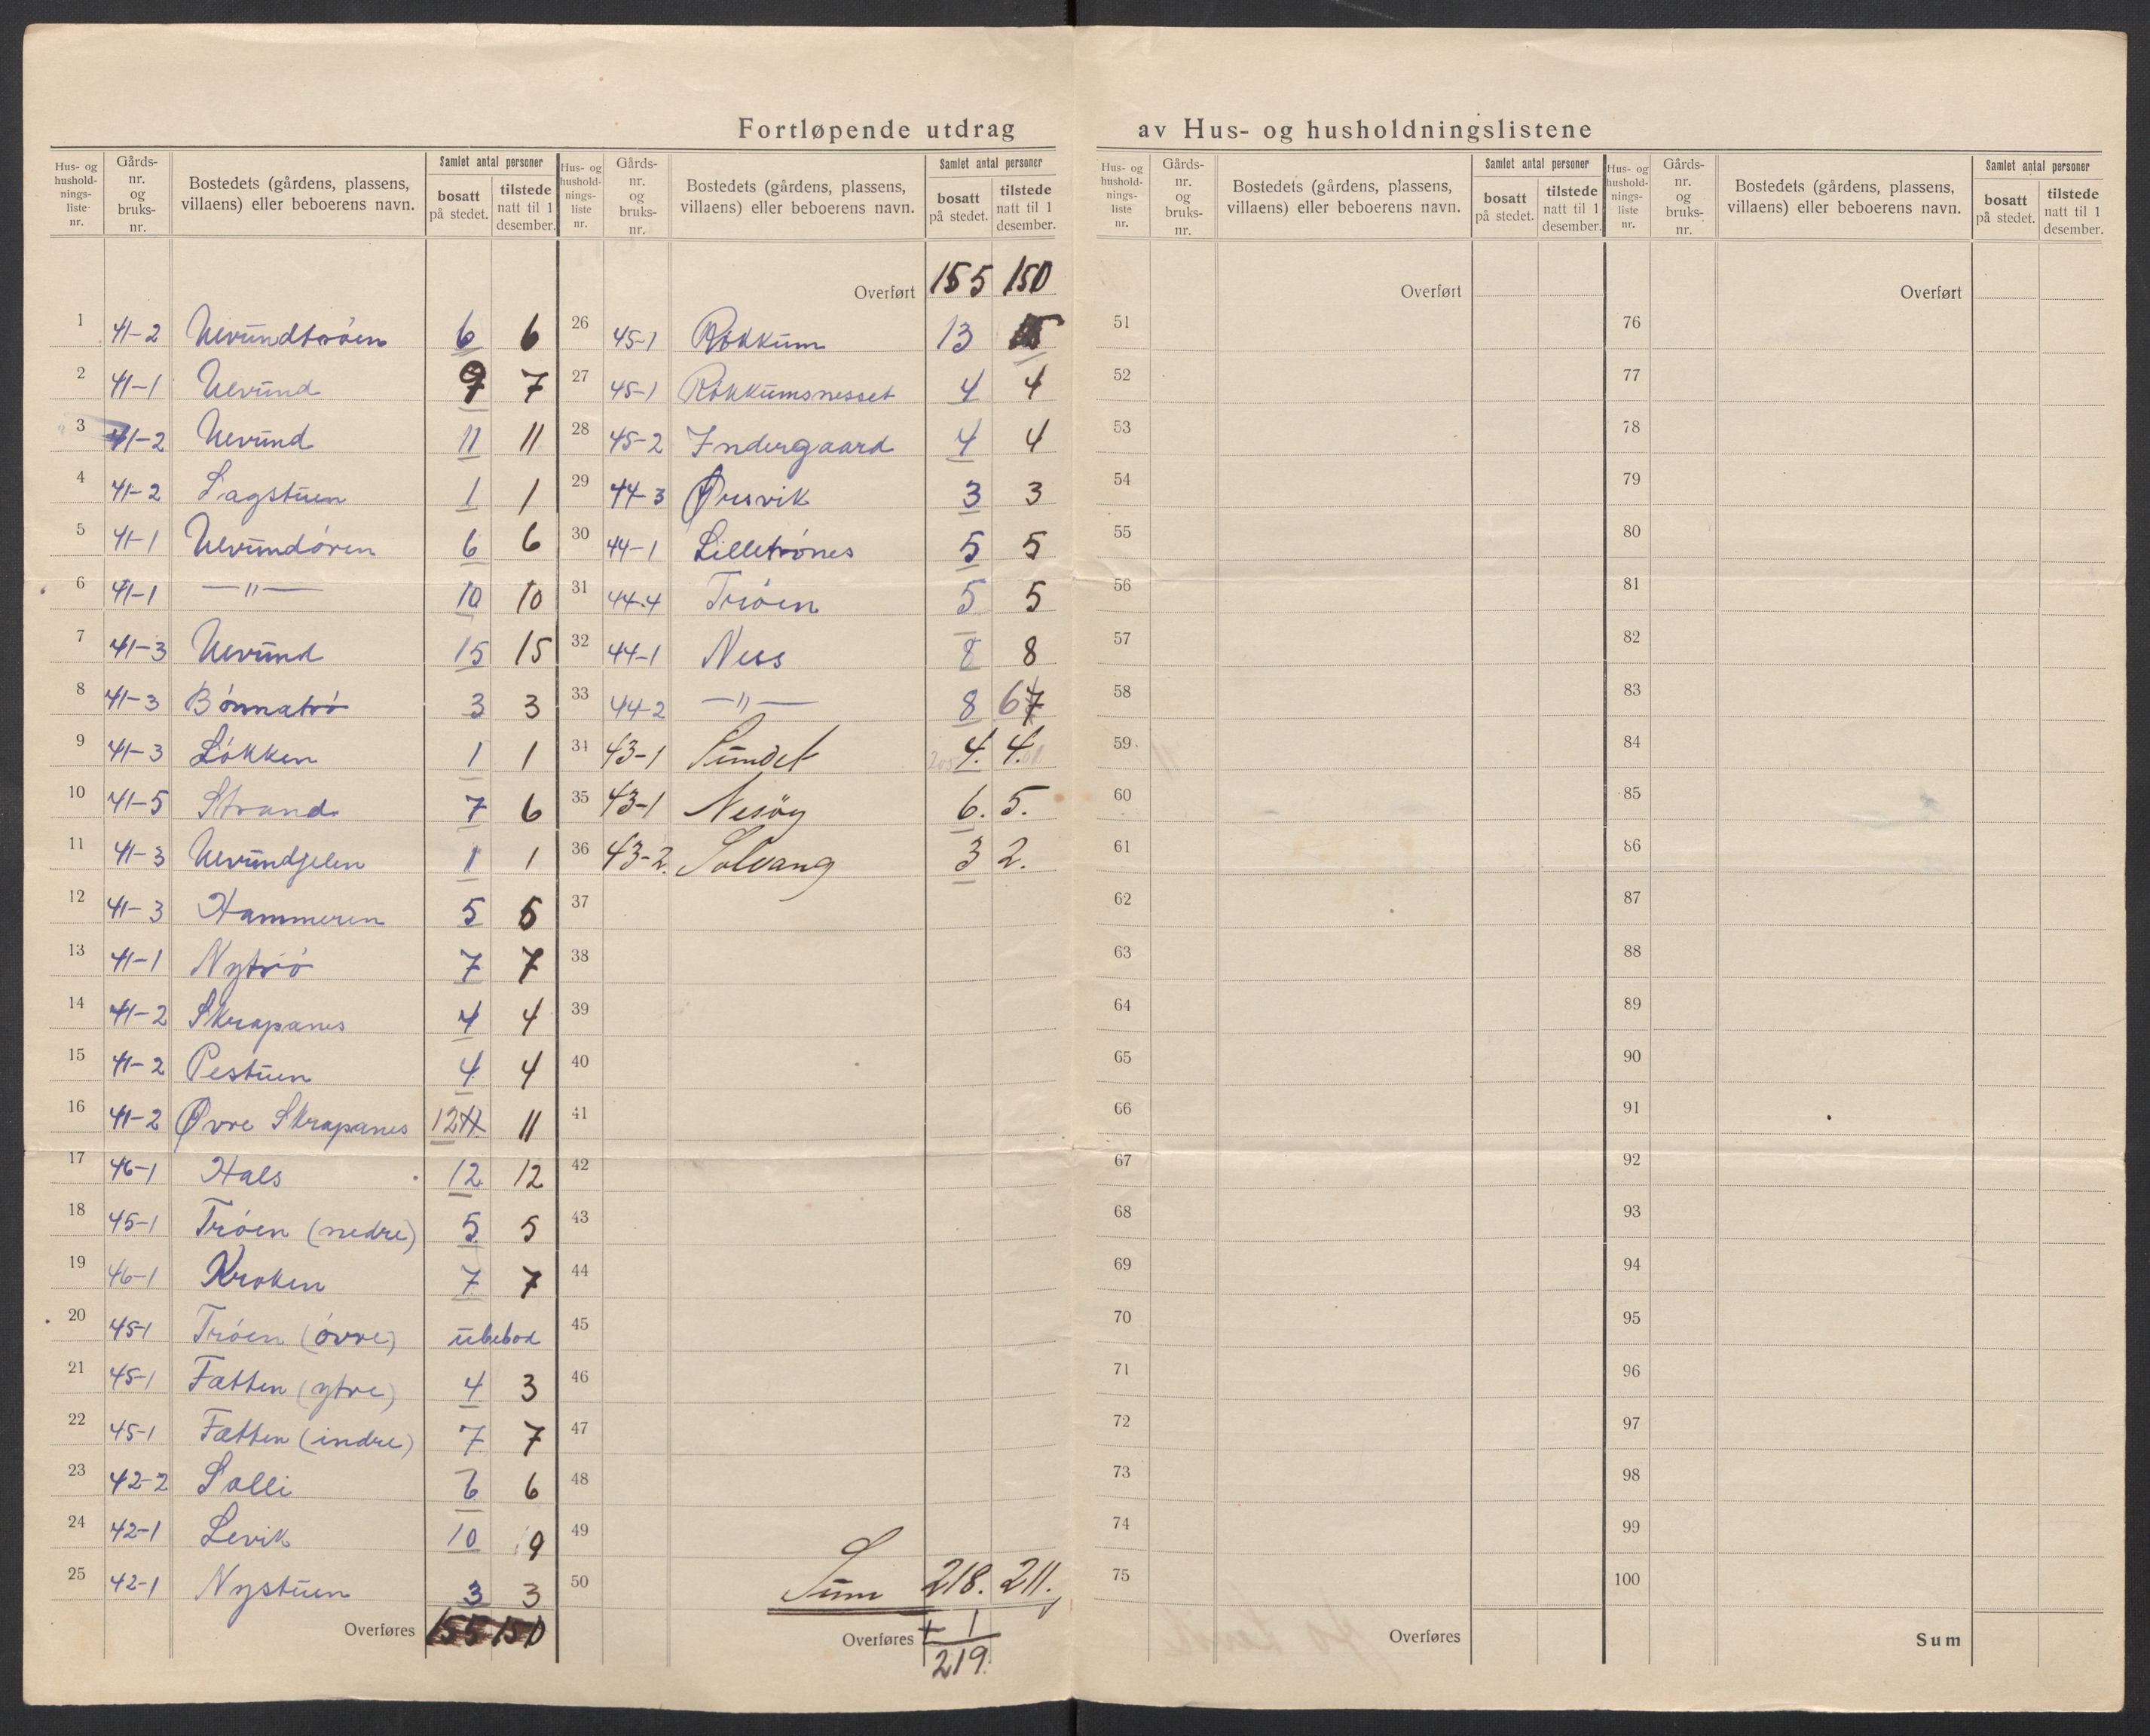 Fortløpende utdrag av Hus- og husholdningslistene
Hus- og hushold-nings-liste nr. Gårds-nr. og bruks-nr. Bostedets (gårdens, plassens, villaens) eller beboerens navn. Samlet antal personer bosatt på stedet. tilstede natt til 1 desember.
1 41-2 Ulvundtrøen 6 6
2 41-1 Ulvund 9 7
3 41-2 Ulvund 11 11
4 41-2 Lagstuen 1 1
5 41-1 Ulvundøren 6 6
6 41-1 —"— 10 10
7 41-3 Ulvund 15 15
8 41-3 Bønnatrø 3 3
9 41-3 Løkken 1 1
10 41-5 Strand 7 6
11 41-3 Ulvundjelen 1 1
12 41-3 Hammeren 5 5
13 41-1 Nytrø 7 7
14 41-2 Skrapanes 4 4
15 41-2 Pestuen 4 4
16 41-2 Øvre Skrapanes 12 11
17 46-1 Hals 12 12
18 45-1 Trøen (nedre) 5 5
19 46-1 Kroken 7 7
20 45-1 Trøen (øvre) ubebod
21 45-1 Fætten (ytre) 4 3
22 45-1 Fætten (indre) 7 7
23 42-2 Solli 6 6
24 42-1 Levik 10 9
25 42-1 Nystuen 3 3
Overføres 155 150
Hus- og hushold-nings-liste nr. Gårds-nr. og bruks-nr. Bostedets (gårdens, plassens, villaens) eller beboerens navn. Samlet antal personer bosatt på stedet. tilstede natt til 1 desember.
Overført 155 150
26 45-1 Røkkum 13
27 45-1 Røkkumsnesset 4 4
28 45-2 Indergaard 4 4
29 44-3 Ørsvik 3 3
30 44-1 Lilletrønes 5 5
31 44-4 Trøen 5 5
32 44-1 Ness 8 8
33 44-2 —"— 8 6 7
34 43-1 Sundet 4. 4.
35 43-1 Nesøy 6. 5.
36 43-2. Solvang 3 2.
37
38
39
40
41
42
43
44
45
46
47
48
49
50 Sum 218. 211.
Overføres + 1
219.
Hus- og hushold-nings-liste nr. Gårds-nr. og bruks-nr. Bostedets (gårdens, plassens, villaens) eller beboerens navn. Samlet antal personer bosatt på stedet. tilstede natt til 1 desember.
Overført
51
52
53
54
55
56
57
58
59
60
61
62
63
64
65
66
67
68
69
70
71
72
73
74
75
Overføres
Hus- og hushold-nings-liste nr. Gårds-nr. og bruks-nr. Bostedets (gårdens, plassens, villaens) eller beboerens navn. Samlet antal personer bosatt på stedet. tilstede natt til 1 desember.
Overført
76
77
78
79
80
81
82
83
84
85
86
87
88
89
90
91
92
93
94
95
96
97
98
99
100
Sum